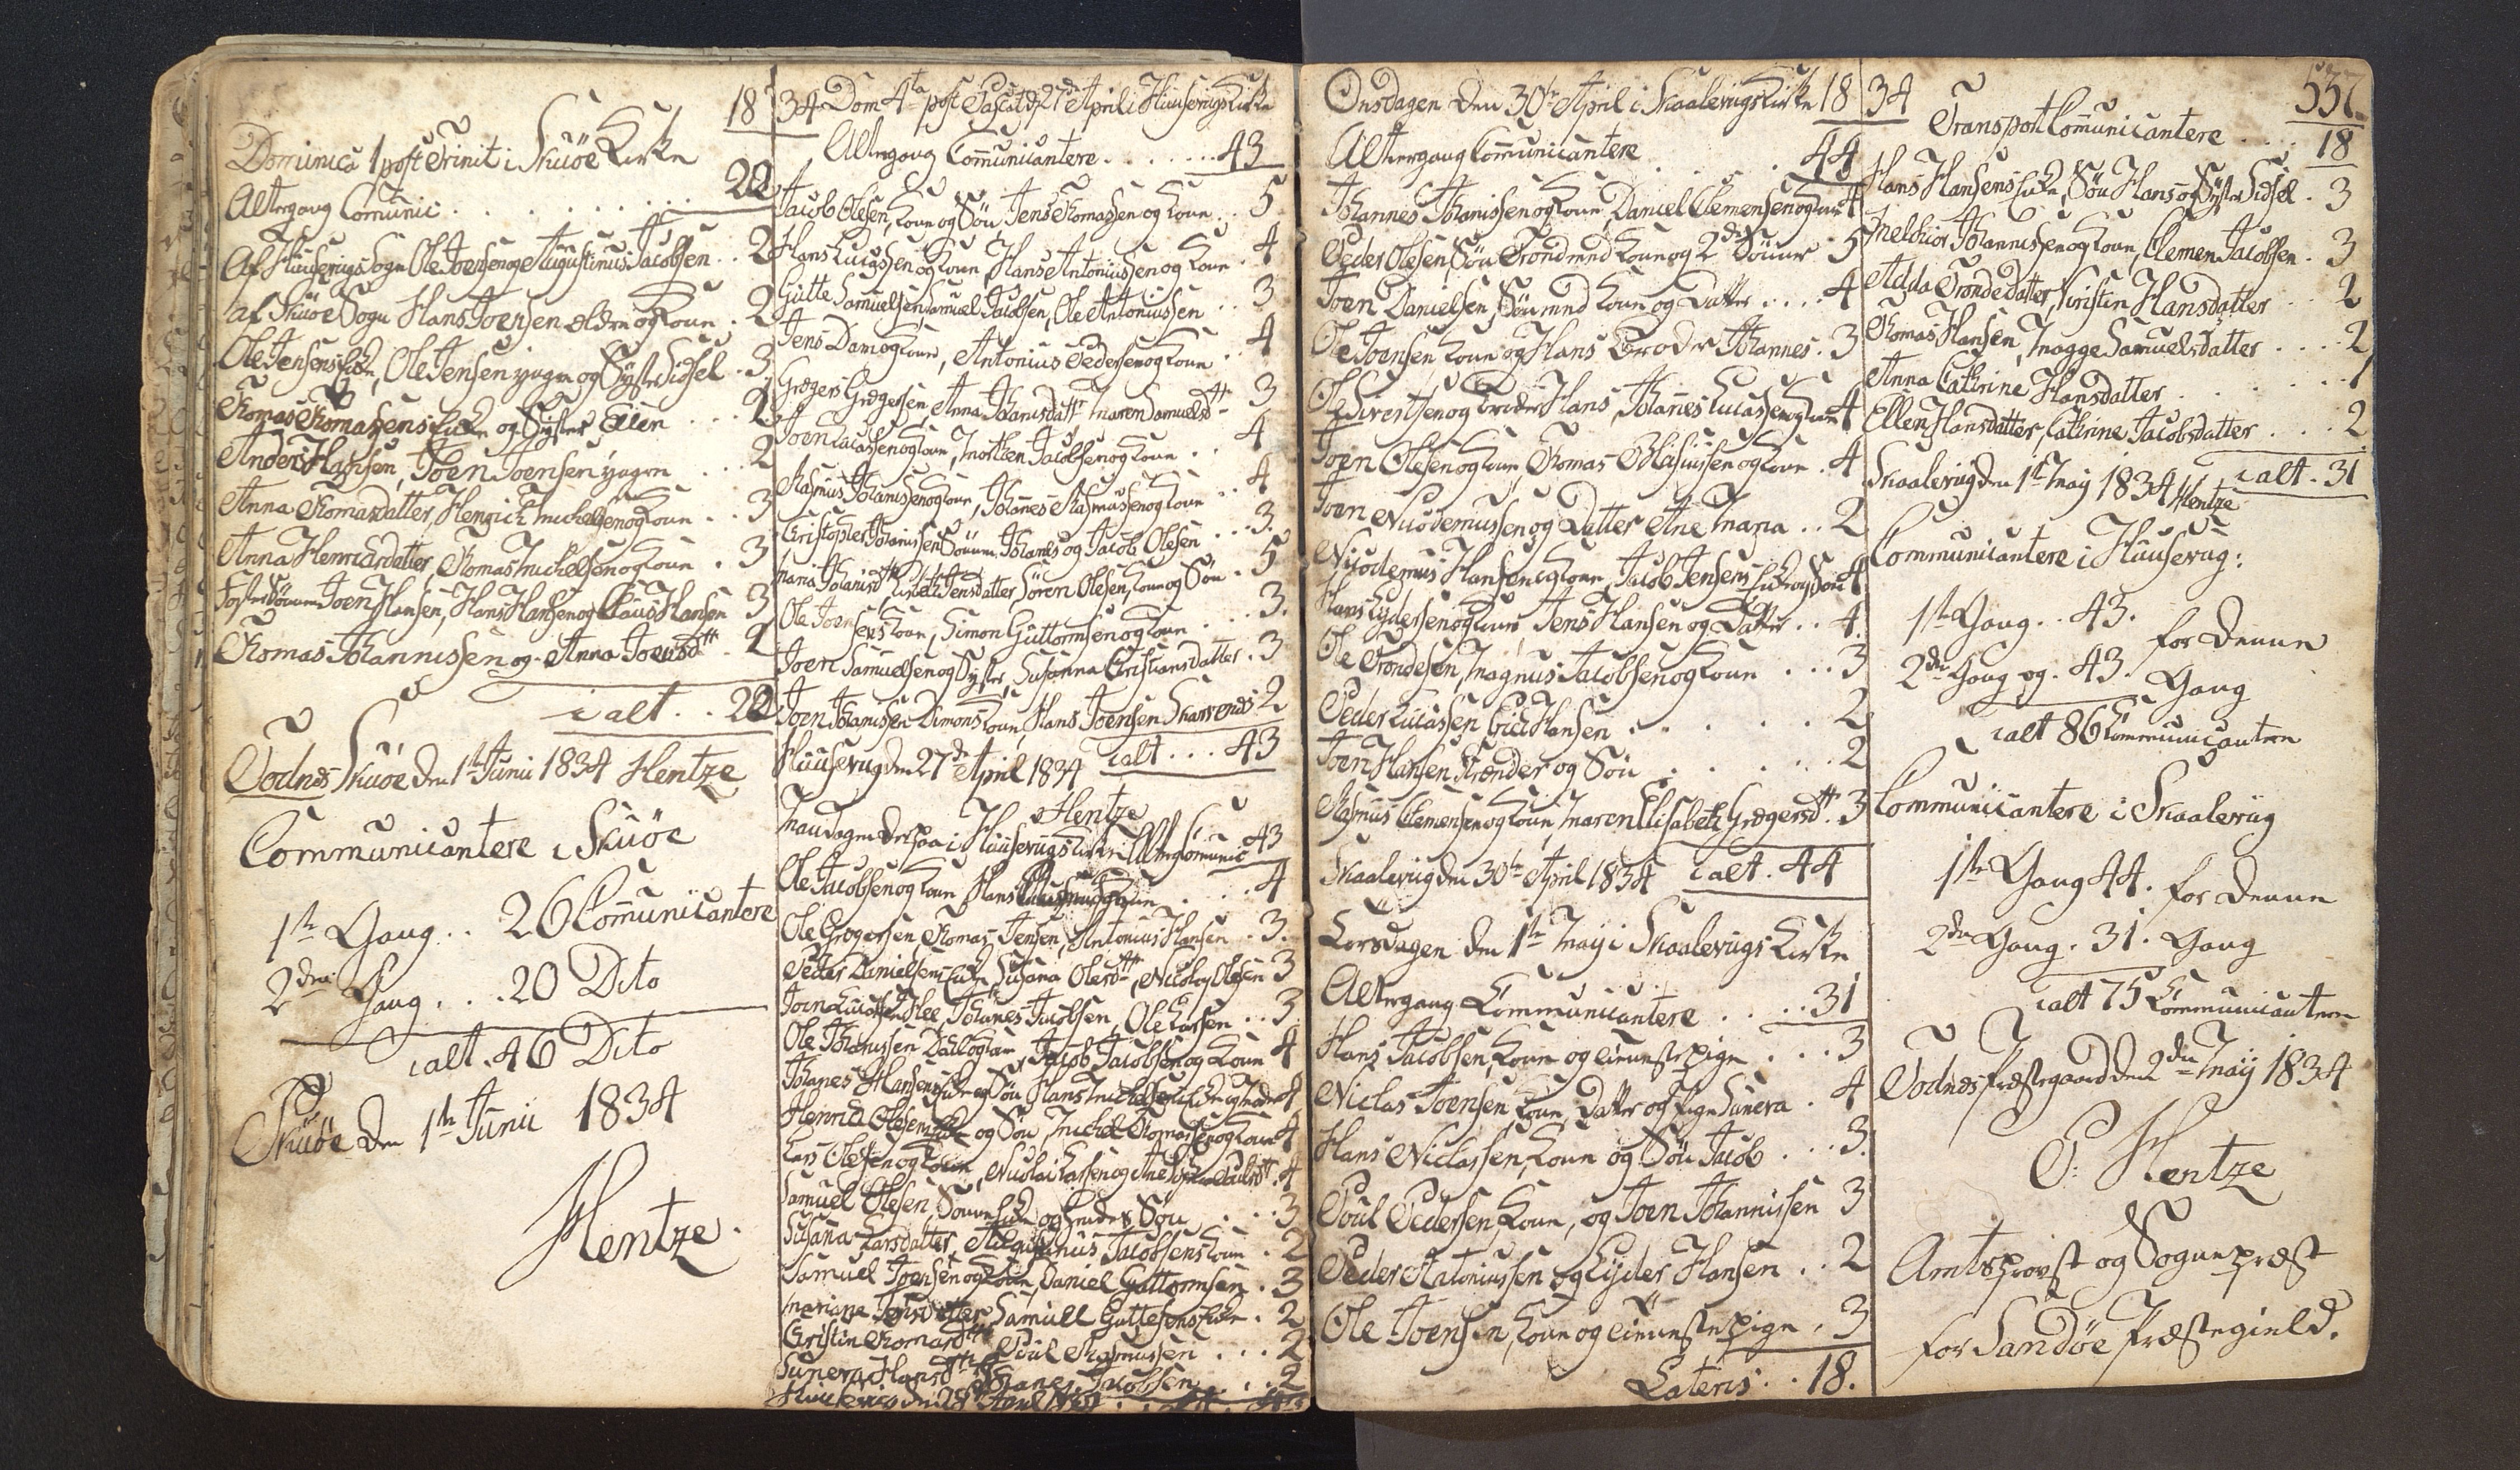 18
Dominica 1 post Trinit i Skuöe Kirke
Altergang Com̅unic . . . 20
Af Huusevigs Sogn Ole Joensen og Augustinus Jacobsen . . 2
af Skuöe Sogn Hans Joensen ældre og Kone . 2
Ole Jensens Enke, Ole Jensen yngre og Syster Sidsel . 3
Thomas Thomasens Enke og Syster Ellen . . 2
Anders Hansen, Joen Joensen yngre . . . 2
Anna Thomasdatter, Henrich Michelsen og Kone . . 3
Anna Henricsdatter, Thomas Michelsen og Kone . 3
Joen Hansen, Hans Hansen og Claus Hansen 3
Thomas Johannissen og Anna Joensdttr . 2
i alt . . 20
Todnes Skuöe den 1ste Junii 1834 Hentze
Communicantere i Skuöe
1ste Gang . . 26 Com̅unicantere
2den Gang . . . 20 Dito
i alt . 46 Dito
Skuöe den 1ste Junii 1834
Hentze.
34 Dom 4ta post Pascat d 27de April i Huusevigs Kirke
Altergang Com̅unicantere . . . . . . . 43
Jacob Olesen, Kone og Sön, Jens Thomassen og Kone . . 5
Hans Lucassen og Kone, Hans Antoniussen og Kone . 4
Gutte Samuelsen, Samuel Jacobsen, Ole Antoniussen . . 3
Jens Dam og Kone, Antonius Pedersen og Kone . . 4
Gregers Gregersen, Anna Johanisdattr Maren Samuelsdttr 3
Joen Lucassen og Kone, Morten Jacobsen og Kone . . 4
Rasmus Johanissen og Kone, Johanes Rasmusen og Kone . . 4
Christopher Johanissen Johanes og Jacob Olesen . . . 3.
Maria Johanisdttr Jensdatter, Sören Olesen, Kone og Sön . 5
Ole Joensens Kone, Simon Guttormsen og Kone . . . 3.
Joen Samuelsen og Syster, Susanna Christiansdatter . 3
Joen Johanissen Dimons Kone, Hans Joensen Skarvenes 2
Huusevig den 27de April 1834 i alt . . . 43
Hentze
Mandagen derpaa i Huusevigs Kirke Alterg Com̅unic 43
Ole Jacobsen og Kone, Hans . . 4
Ole Gregersen, Thomas Jensen, Antonius Hansen . 3.
Peder Danielsens Enke, Susana Olesdttr, Nicolay Olesen 3
Joen Lucassen Johanes Jacobsen, Ole Larsen . . 3
Ole Johanissen Jacob Jacobsen og Kone 4
Johanes Hansens Enke og Sön, Hans Michelsens 4
Henric Olesens Enke og Sön, Michel Thomassen og Kone 4
Lars Olesen og Kone, Nicolai Larsen og . 4
Samuel Olesen, Enke og hendes Sön . . . 3
Susana Larsdatter, Augustinus Jacobsens Kone . 2
Samuel Joensen og Kone, Daniel Guttormsen . . 3
Mariane Samuel Guttesens Enke . 2
Christin Thomasdttr Poul Rasmussen . . . 2
Sunneva Hansdttr Johanes Jacobsen . . . 2
Huusevig den 28de April 1834
Onsdagen den 30te April i Skaalevigs Kirke 18
Altergang Com̅unicantere . . . 44
Johannes Johanissen og Kone, Daniel Clemensen og Kone 4
Peder Olesen, Sön Trond med Kone og 2de Sönner . 5
Joen Danielsen, Sön med Kone og Datter . . . . 4
Ole Joensen Kone og Hans Broder Johannes . 3
Ole Sivertsen og Broder Hans, Johanes Lucassen og Kone 4
Joen Olesen og Kone Thomas Blasiussen og Kone . 4
Joen Nicodemussen og Datter Ane Maria . . 2
Nicodemus Hansen og Kone, Jacob Jensens Enke og Sön 4
Hans Eydersen og Kone, Jens Hansen og Datter . . 4.
Ole Trondesen, Magnus Jacobsen og Kone . . . 3
Peder Lucassen, Hansen . . . . . . 2
Joen Hansen Trender og Sön . . . . . 2
Rasmus Clemensen og Kone, Maren Elisabeth Gregersdttr . 3
Skaalevig den 30te April 1834 i alt . 44
Torsdagen den 1ste May i Skaalevigs Kirke
Altergang Communicantere . . . . 31
Hans Jacobsen, Kone og Tieneste pige . . . 3
Niclas Joensen, Kone, Datter og Pige Suneva . 4
Hans Niclassen, Kone og Sön Jacob . . . 3.
Poul Pedersen, Kone, og Joen Johannissen 3
Peder Antoniussen og Eyder Hansen . . 2
Ole Joensen, Kone og Tieneste pige . 3
Lateris . . 18.
34
537.
Transport Com̅unicantere . . . . 18
Hans Hansens Enke, Sön Hans og Syster Sidsel . 3
Melchior Johannissen og Kone, Clemen Jacobsen . 3
Adda Trondedatter, Kristin Hansdatter . . 2
Thomas Hansen, Magge Samuelsdatter . . . . 2
Anna Cathrine Hansdatter . . . . . 1
Ellen Hansdatter, Cathrine Jacobsdatter . . . . 2
Skaalevig den 1ste May 1834 Hentze i alt . 31
Communicantere i Huusevig:
1ste Gang . . 43. for denne
2den Gang og . 43. Gang
i alt 86 Communicantere
Communicantere i Skaalevig
1ste Gang 44. for denne
2den Gang . 31. Gang
i alt 75 Communicantere
Todnes Præstegaard den 2den May 1834
P: Hentze
Amtsprovst og Sognepræst
for Sandöe Præstegield.